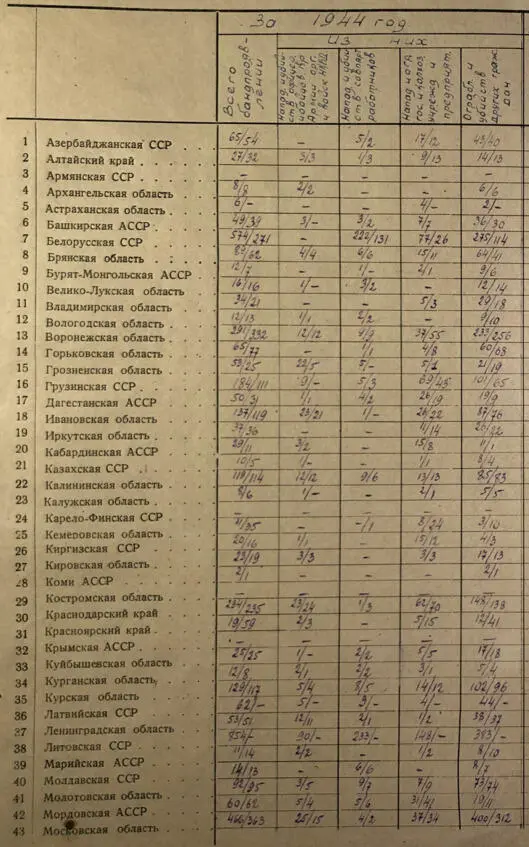 За 1944 год
Всего бандпроявлении
Из них
работников
предприят.
1 Азербайджанская ССР . . . 65/54 – 5/2 17/12 43/40
2 Алтайский край . . . . 27/32 3/3 1/3 9/13 14/13
3 Армянская ССР . . . . – – – – –
4 Архангельская область . . . 8/8 2/2 – – 6/6
5 Астраханская область . . . . 6/– – – 4/– 2/–
6 Башкирская АССР . . . . 49/39 3/– 3/2 7/7 36/30
7 Белорусская ССР . . . . 574/271 – 222/131 77/26 275/114
8 Брянская область . . . . 83/62 4/4 6/6 15/11 64/41
9 Бурят-Монгольская АССР 12/7 – 1/– 2/1 9/6
10 Велико-Лукская область . . . 16/16 1/– 3/2 – 12/14
11 Владимирская область . . . . 34/21 – – 5/3 29/18
12 Вологодская область . . . . 12/13 1/1 2/2 – 9/10
13 Воронежская область . . . . 291/332 12/12 9/9 37/55 233/256
14 Горьковская область . . . . 65/77 – 1/1 4/8 60/68
15 Грозненская область . . . . 53/25 22/5 5/– 5/2 21/19
16 Грузинская ССР . . . . 184/111 9/– 5/3 69/45 101/65
17 Дагестанская АССР . . . . 50/31 1/1 4/2 26/19 19/9
18 Ивановская область . . . . 137/119 23/21 1/– 26/22 87/76
19 Иркутская область . . . . 37/36 – – 11/14 26/22
20 Кабардинская АССР . . . . 29/11 3/2 – 15/8 11/1
21 Казахская ССР . . . . 10/5 1/– – 1/1 8/4
22 Калининская область . . . . 118/114 12/12 9/6 13/13 85/83
23 Калужская область . . . . 8/6 1/– – 2/1 5/5
24 Карело-Финская ССР . . . . – – – – –
25 Кемеровская область . . . . 11/35 – –/1 8/24 3/10
26 Киргизская ССР . . . . 20/16 1/1 – 15/12 4/3
27 Кировская область . . . . 23/19 3/3 – 3/3 17/13
28 Коми АССР . . . . 2/1 – – – 2/1
29 Костромская область . . . . – – – – –
30 Краснодарский край . . . . 234/235 23/24 1/3 62/70 148/138
31 Красноярский край . . . . 19/59 2/3 – 5/15 12/41
32 Крымская АССР . . . . – – – – –
33 Куйбышевская область . . . 25/25 1/– 2/2 5/5 17/18
34 Курганская область . . . . 12/8 2/1 2/2 3/1 5/4
35 Курская область . . . . 129/117 5/4 8/5 14/12 102/96
36 Латвийская ССР . . . . 62/– 5/– 9/– 4/– 44/–
37 Ленинградская область . . . . 53/51 12/11 2/1 1/2 38/37
38 Литовская ССР . . . . 854/– 90/– 233/– 148/– 383/–
39 Марийская АССР . . . . 11/14 2/2 – 1/2 8/10
40 Молдавская ССР . . . . 14/13 – 6/6 – 8/7
41 Молотовская область . . . . 92/95 3/5 9/7 7/9 73/74
42 Мордовская АССР . . . . 60/62 5/4 5/6 31/41 19/11
43 Московская область . . . . 466/363 25/15 4/2 37/34 400/312